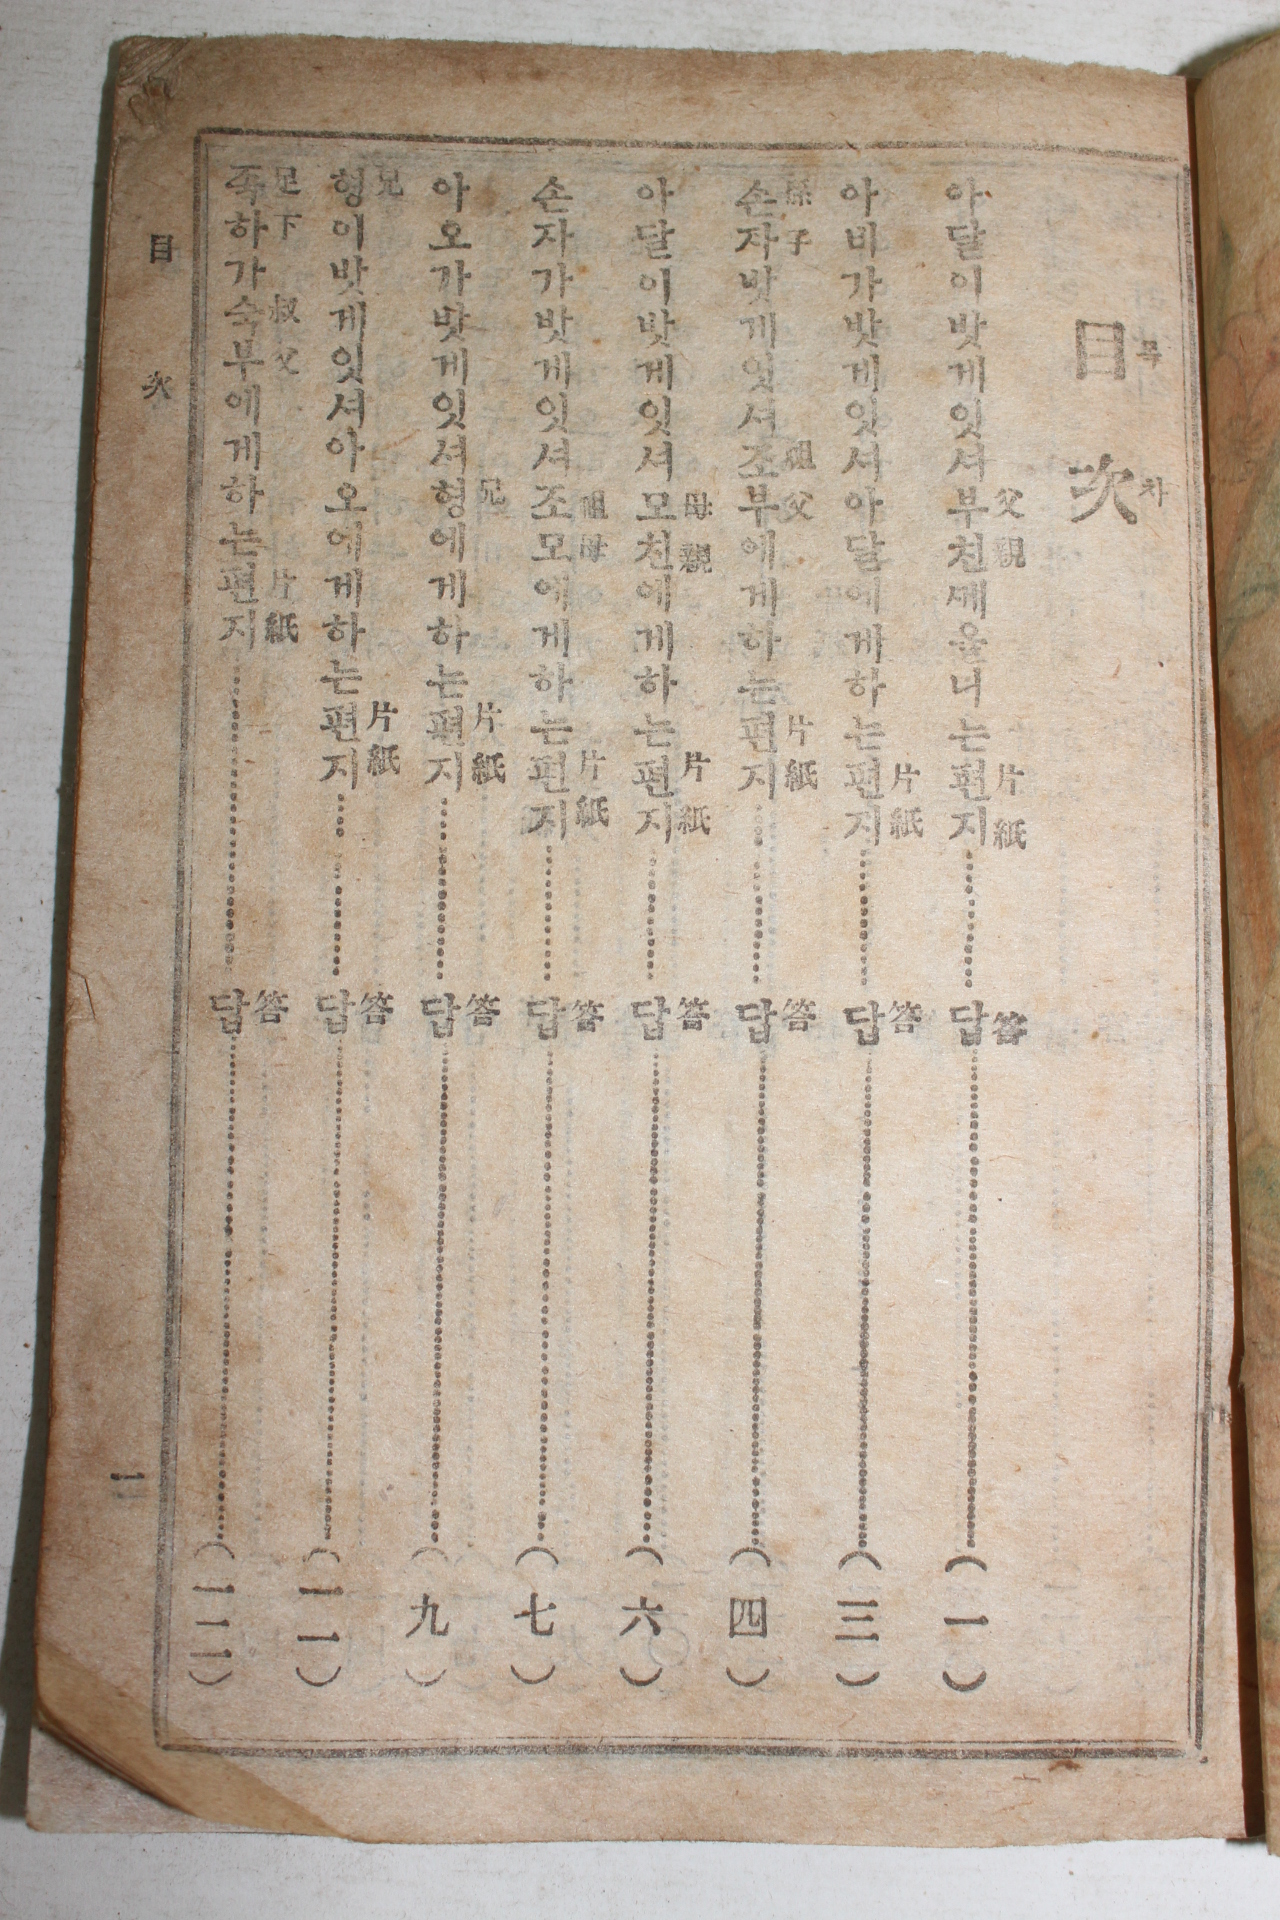 目次
목차
아달이밧게잇셔부친쎄올니는편지……답……(一)
父親 片紙 答
아비가밧게잇셔아달에게하는편지……답……(三)
片紙 答
손자밧게잇셔조부에게하는편지……답……(四)
孫子 祖父 片紙 答
아달이밧게잇셔모친에게하는편지……답……(六)
母親 片紙 答
손자가밧게잇셔조모에게하는편지……답……(七)
祖母 片紙 答
아오가밧게잇셔형에게하는편지……답……(九)
兄 片紙 答
형이밧게잇셔아오에게하는편지……답……(一一)
兄 片紙 答
족하가숙부에게하는편지……답……(一二)
足下 叔父 片紙 答
目次